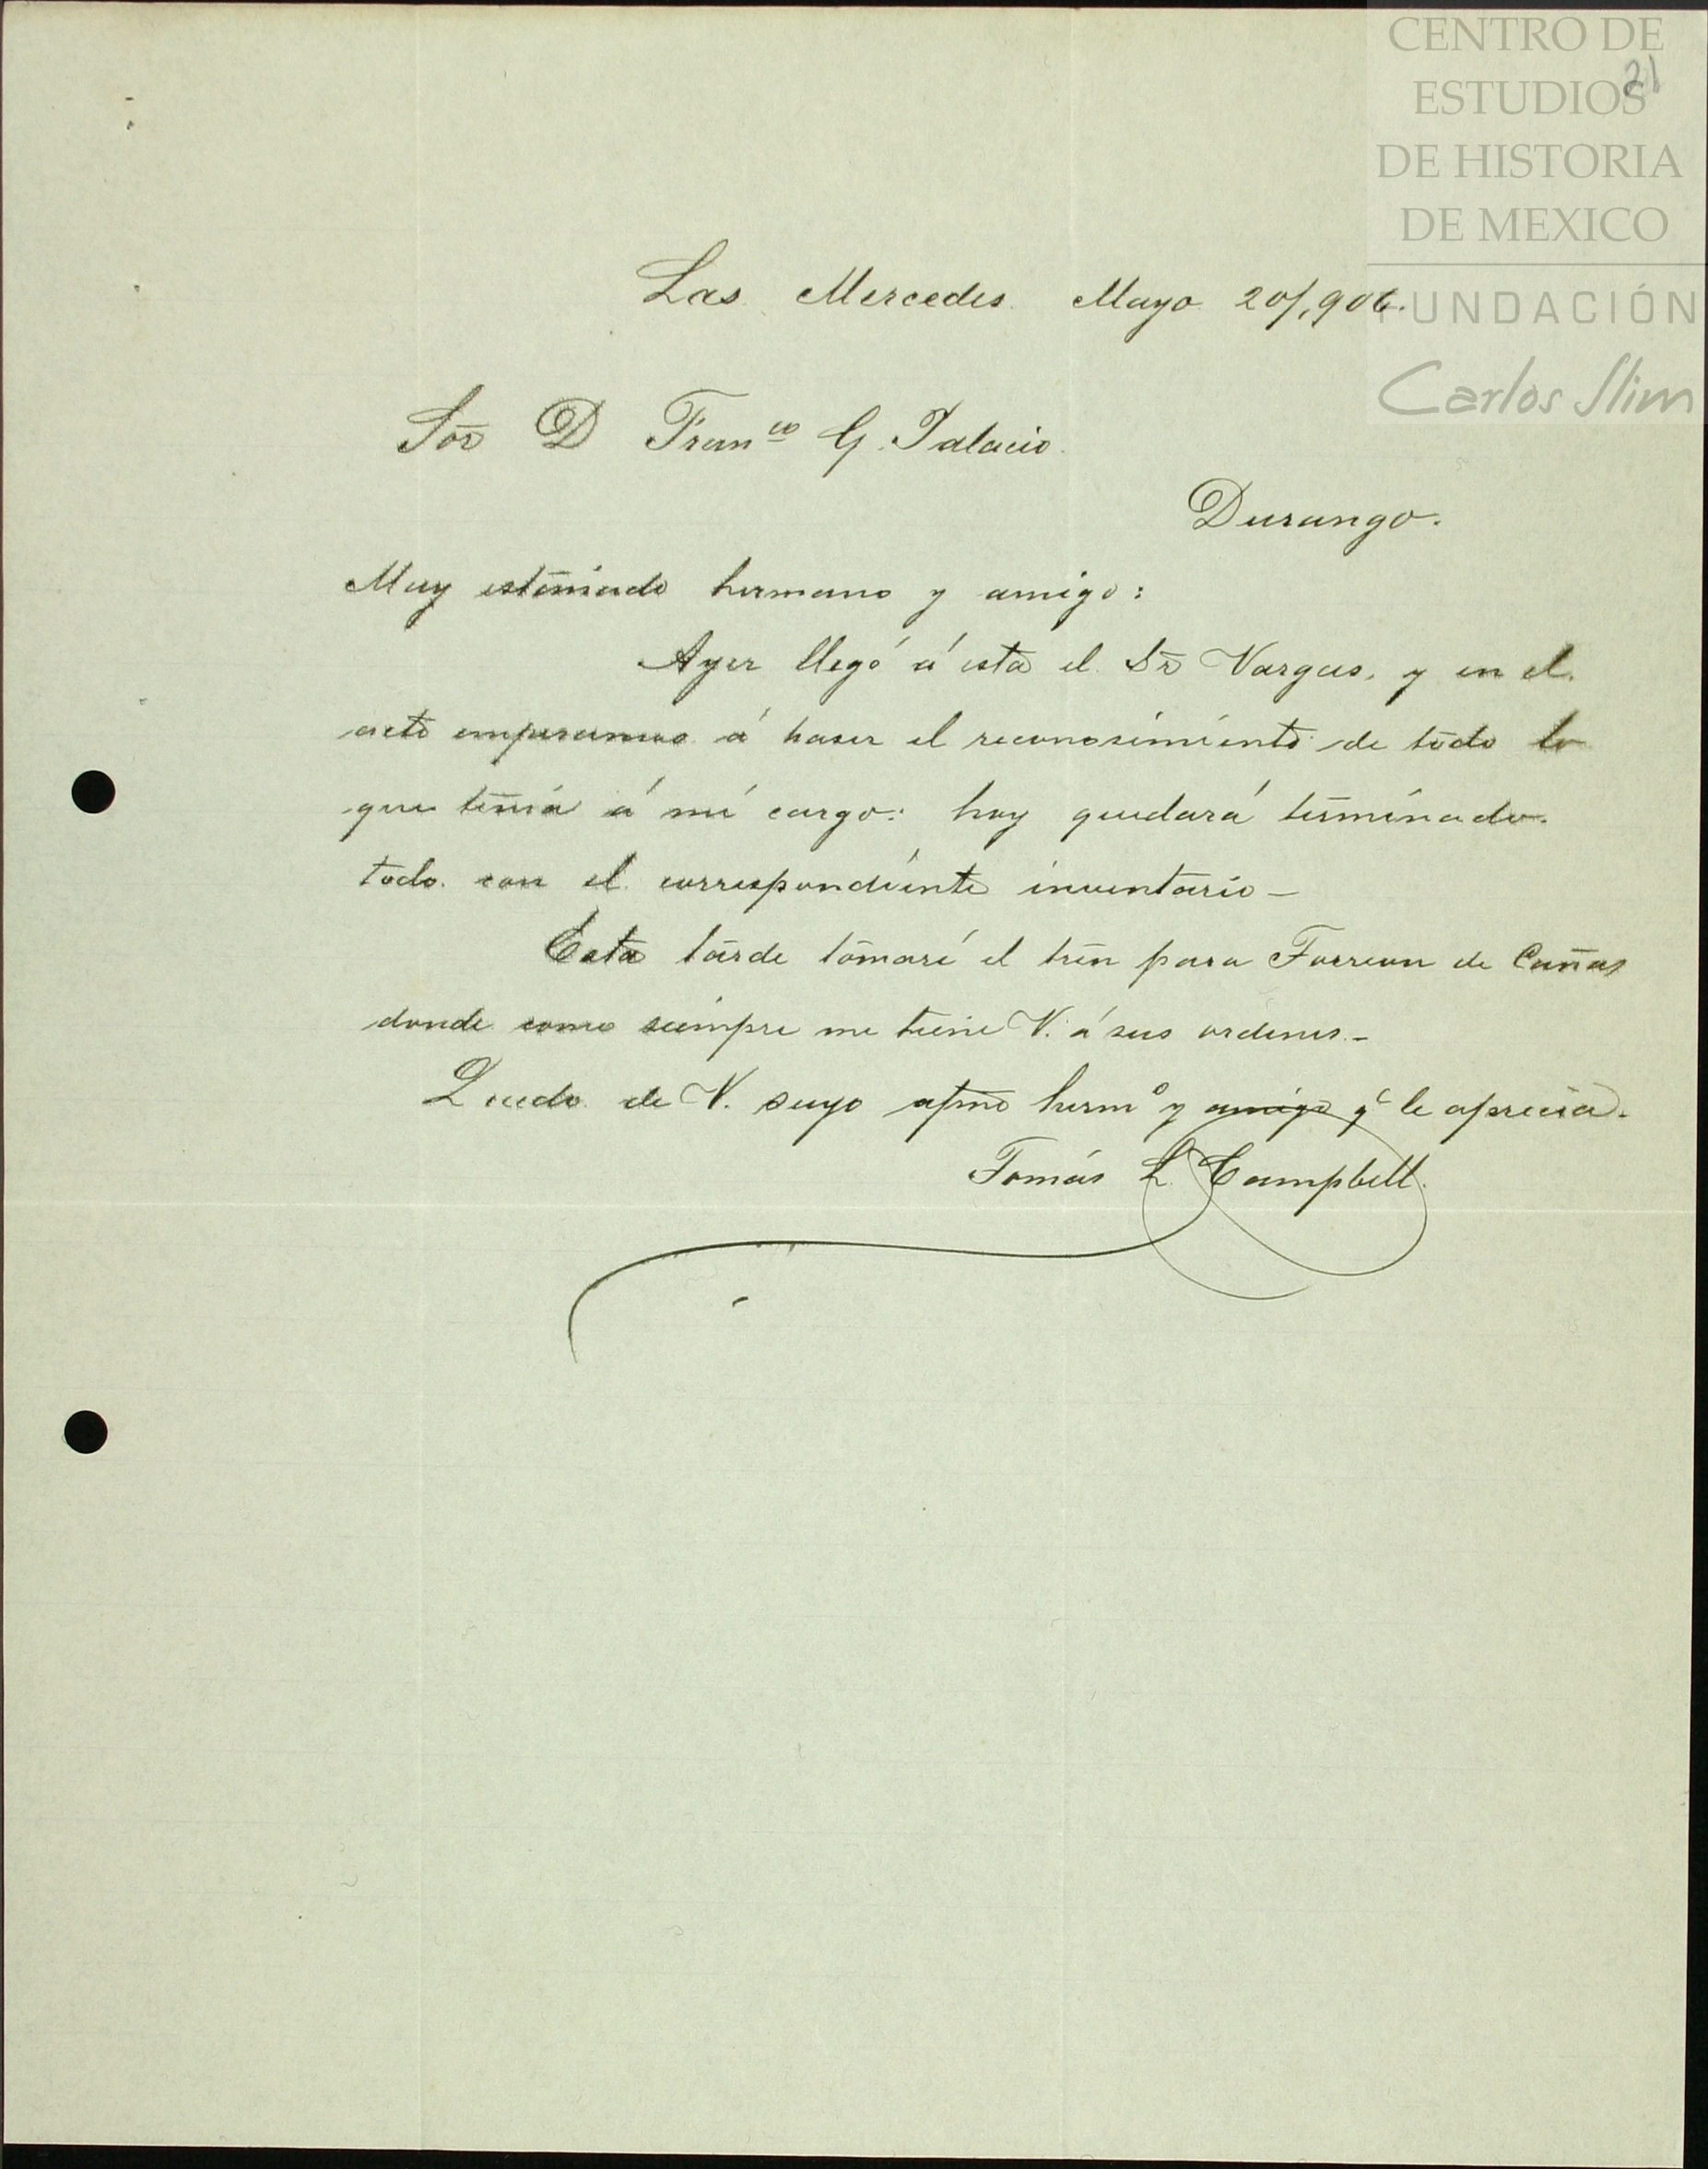 CENTRO DE
ESTUDIOS
21
DE HISTORIA
DE MEXICO
FUNDACIÓN
Carlos Slim
Las Mercedes Mayo 20/,906.
Sor D Franco G. Palacio.
Durango.
Muy estimado hermano y amigo:
Ayer llegó á esta el Sr Vargas, y en el
acto empesamos á haser el reconosimiento de todo lo
que tenia á mi cargo: hoy quedará terminado
todo con el correspondiente inventario –
Esta tarde tomaré el tren para Torreon de Cañas
donde como siempre me tiene V. á sus ordenes. –
Quedo de V. suyo afmo hermo y amigo q̃ le aprecia.
Tomás L. Campbell.